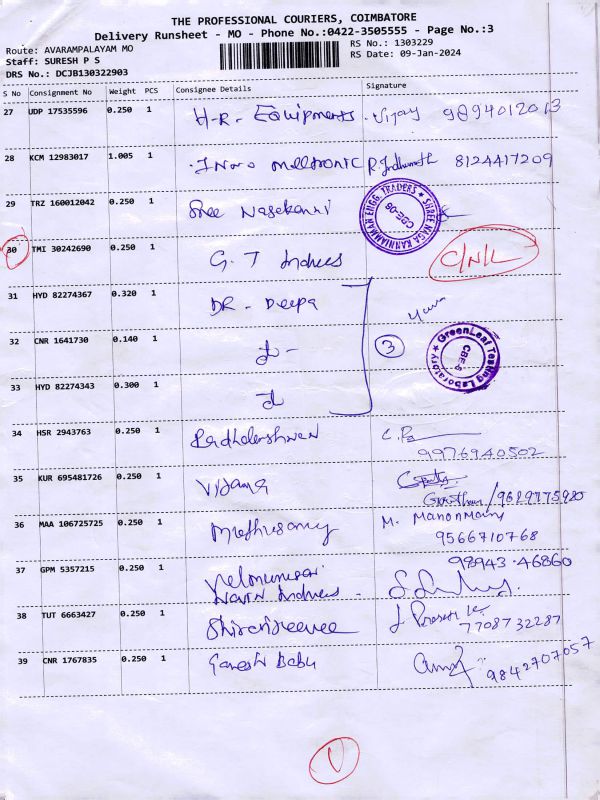 THE PROFESSIONAL COURIERS, COIMBATORE
Delivery Runsheet - MO - Phone No.:0422-3505555 - Page No.:3
Route: AVARAMPALAYAM MO RS No.: 1303229
Staff: SURESH P S RS Date: 09-Jan-2024
DRS No.: DCJB130322903
S No Consignment No Weight PCS Consignee Details Signature
27 UDP 17535596 0.250 1 H-R- Equipments Vijay 9894012013
28 KCM 12983017 1.005 1 Inno Meltronic 8124417209
29 TRZ 160012042 0.250 1 Sree SHREE NAGA KANNIAMMAN ENGG TRADERS CBE-06
30 TMI 30242690 0.250 1 G. T C/N/L
31 HYD 82274367 0.320 1 DR - Deepa
32 CNR 1641730 0.140 1 3 GreenLeaf Testing Laboratory CBE-6
33 HYD 82274343 0.300 1
34 HSR 2943763 0.250 1 9976940502
35 KUR 695481726 0.250 1 Vijaya /9629775980
36 MAA 106725725 0.250 1 M. Manonmany
9566710768
37 GPM 5357215 0.250 1 98943-46860
38 TUT 6663427 0.250 1 7708732287
39 CNR 1767835 0.250 1 Ganesh Babu 9842707057